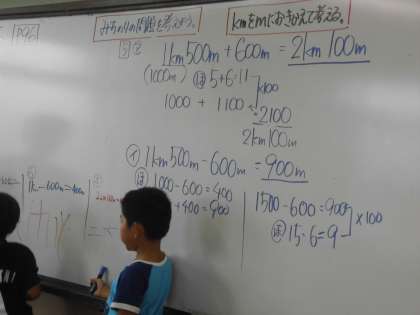 P96
みちのりの問題を考えよう。
kmをmにおきかえて考える。
1km500m+600m=2km100m
(1000m) ほ 5+6=11
×100
1000 + 1100
=2100
2km100m
イ 1km500m-600m=900m
ほ 1000-600=400
+400=900
1500-600=900
ほ 15-6=9
×100
1k-600m=400m